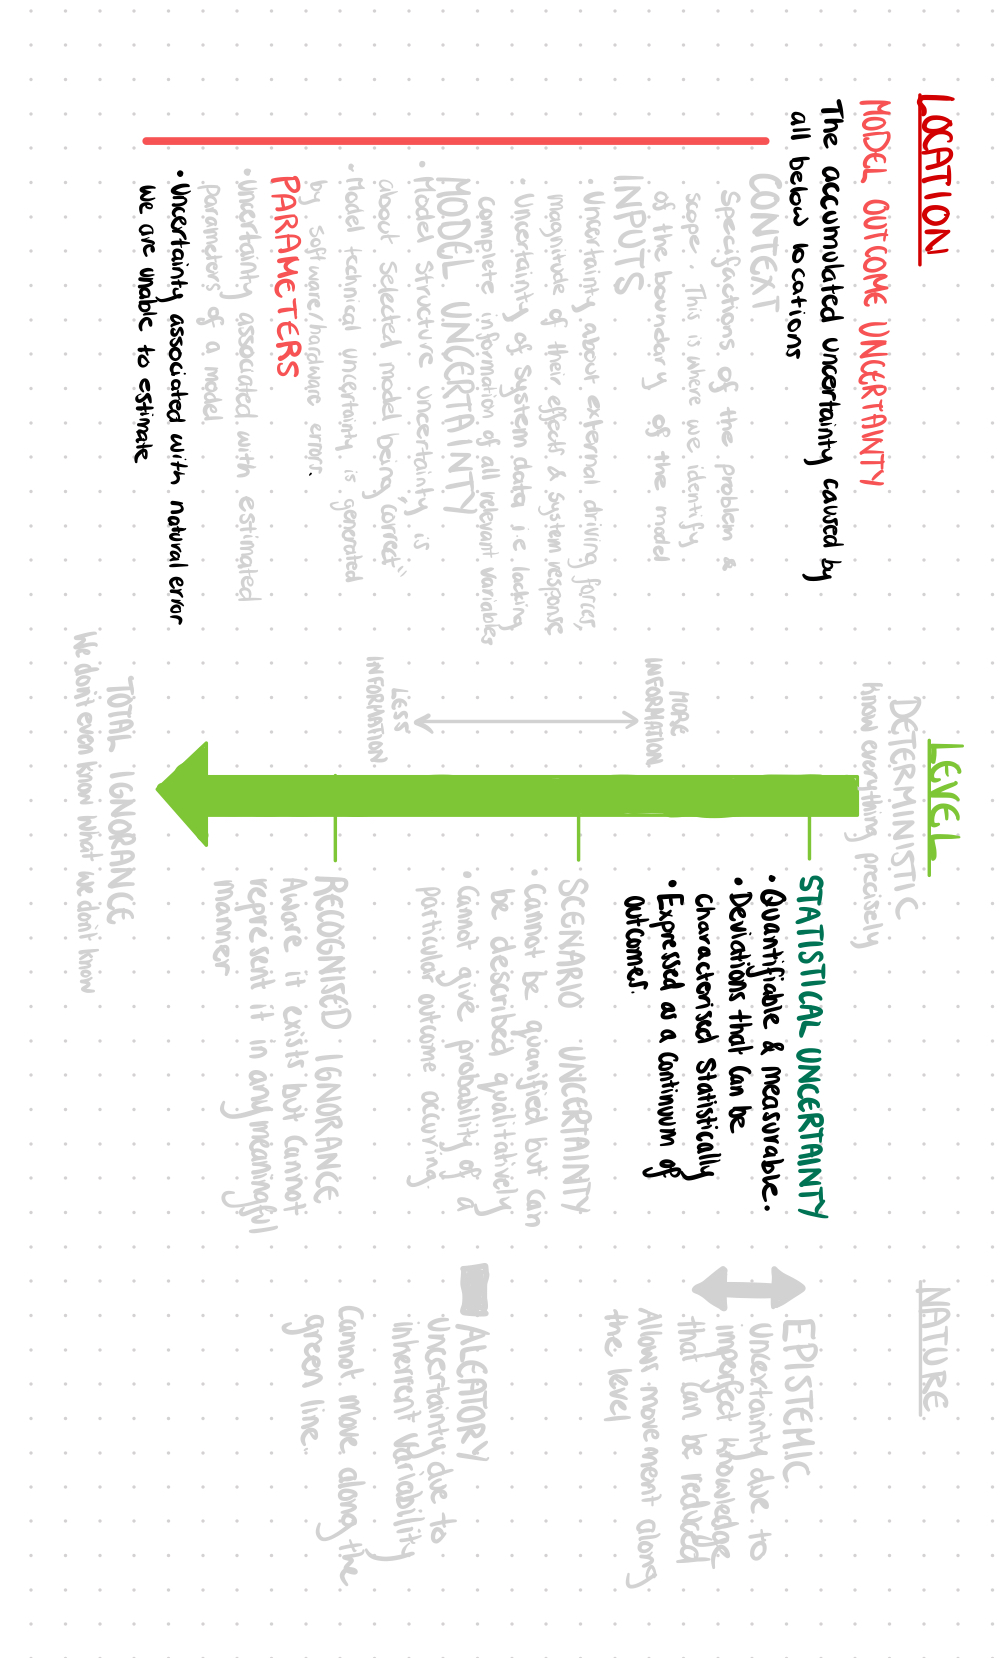 LOCATION
MODEL OUTCOME UNCERTAINTY
The accumulated uncertainty caused by
all below locations
CONTEXT
Specifactions of the problem &
scope. This is where we identify
of the boundary of the model
INPUTS
• Uncertainty about external driving forces,
magnitude of their effects & system response
• Uncertainty of System data i.e. lacking
complete information of all relevant variables
MODEL UNCERTAINTY
• Model Structure uncertainty is
about selected model being "correct"
• Model technical uncertainty is generated
by software/hardware errors.
PARAMETERS
• Uncertainty associated with estimated
parameters of a model
• Uncertainty associated with natural error
we are unable to estimate
LEVEL
DETERMINISTIC
Know everything precisely
MORE
INFORMATION
LESS
INFORMATION
STATISTICAL UNCERTAINTY
• Quantifiable & measurable.
• Deviations that can be
characterised statistically
• Expressed as a continuum of
outcomes.
SCENARIO UNCERTAINTY
• Cannot be quanified but can
be described qualitatively
• Cannot give probability of a
particular outcome occuring.
RECOGNISED IGNORANCE
Aware it exists but cannot
represent it in any meaningful
manner
TOTAL IGNORANCE
We don't even know what we don't know
NATURE
EPISTEMIC
Uncertainty due to
imperfect knowledge
that can be reduced
Allows movement along
the level
ALEATORY
Uncertainty due to
inherrent variability
Cannot move along the
green line.